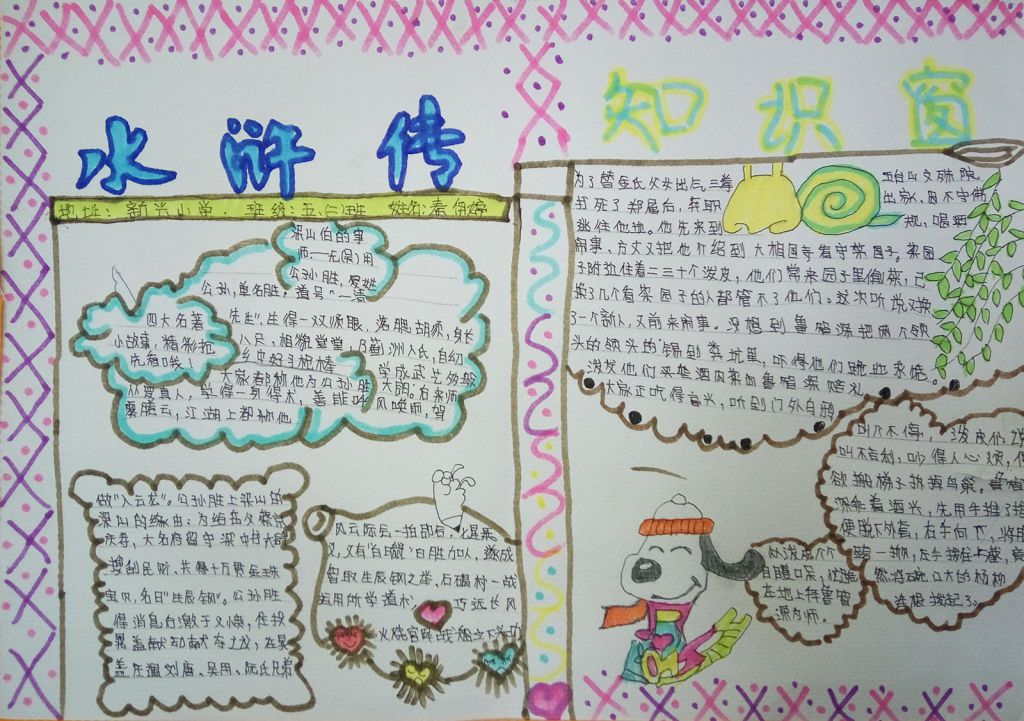 水浒传
知识窗
地址：新兴小学.班级：五(三)班 姓名：秦伊婷
梁山伯的军
师:——无保)用
公孙胜，爱姓
公孙,单名胜，道号"一清
先生".生得一双师眼，落腮胡须，身长
八尺，相貌堂堂，乃蓟洲人氏，自幼
乡中好斗枪棒
学成武艺
大家都称他为公孙胜
大朗。
从罗真人，学得一身得术，善能呼
风唤雨，驾
雾腾云，江湖上都称他
四大名著
小故事，精彩抢
先看哦！
做"入云龙"。公孙胜上梁山的
梁山的缘由：为给岳父蔡京
庆寿，大名府留守梁中书大肆
搜刮民脂、共得十万贯金珠
宝贝，名曰"生辰钢"。公孙胜
得消息白激于义愤，住投
盖庄遇刘唐、吴用、阮氏兄弟
风云际会一拍即后，
智取生辰钢之举，石碣村一战
运用所学道术
巧远长风
火烧官阵战船
为了替金氏父女出气，三拳
打死了郑屠后，弃职
逃往他地。他先来到
五台山文殊院
出家，因不守佛
规，喝酒
闹事、方丈又把他介绍到大相国寺看守菜园子。菜园
子附近住着二三十个泼皮，他们常来园子里偷菜，已
换了几个看菜园子的人都管不了他们。这次听说又换
了一个新人，又前来闹事。没想到鲁智深把两个领
头的领头的踢到粪坑里，吓得他们跪地求饶。
泼皮们买些酒肉菜向鲁智深陪礼
大家正吃得高兴，听到门外乌鸦
叫个不停，泼皮们说
叫不吉利，吵得人心烦，
欲搬梯子拆掉鸟巢。
深乘着酒兴，先用手
使脱下外套，右手向下，
一把，左手拔住上截，
口大的杨柳
连根拔起了。
众泼皮个个
目瞪口呆，
在地上拜鲁智
深为师。